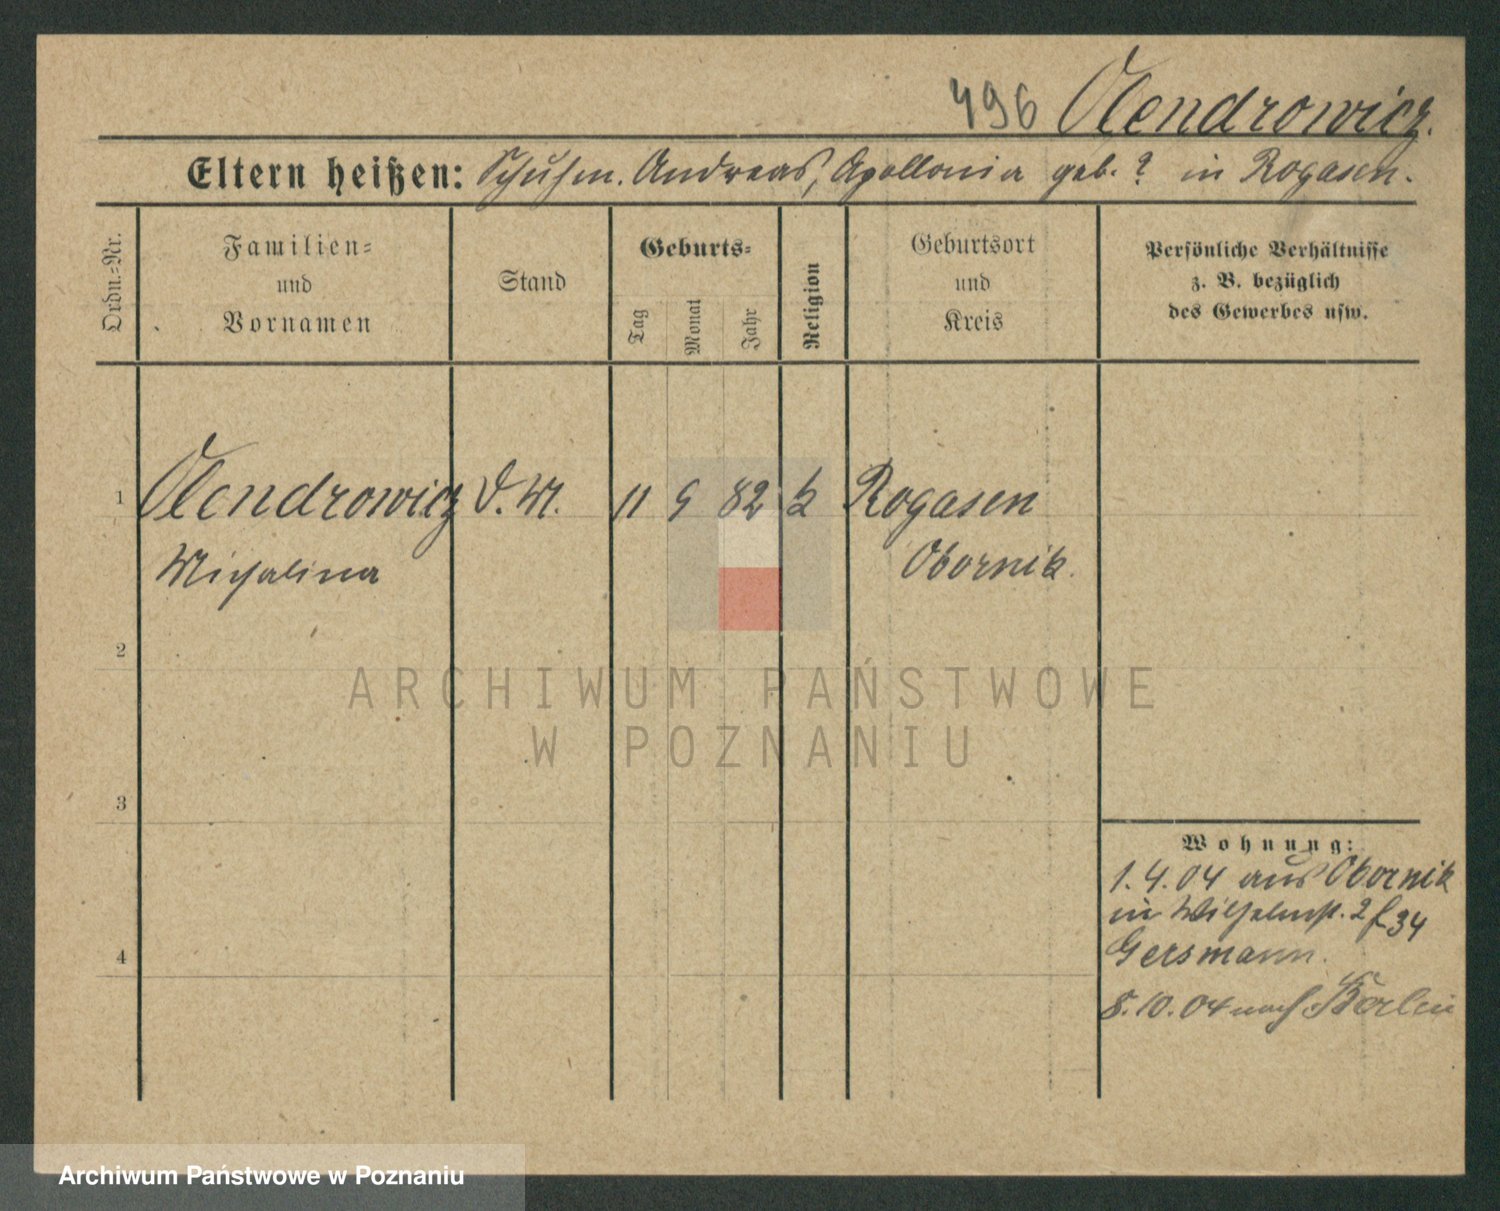 496 Olendrowicz.
Eltern heißen: Schuhm. Andreas, Apollonia geb. ? in Rogasen.
Ordn.=Nr.
Familien=
und
Vornamen
Stand
Geburts=
Tag
Monat
Jahr
Religion
Geburtsort
und
Kreis
Persönliche Verhältnisse
z. B. bezüglich
des Gewerbes usw.
1 Olendrowicz D. M. 11 9 82 k Rogasen
Michalina Obornik.
2
ARCHIWUM PAŃSTWOWE
W POZNANIU
3
Wohnung:
1.4.04 aus Obornik
in Wilhelmst. 2 f 34
4 Gersmann.
8.10.04 nach Berlin
Archiwum Państwowe w Poznaniu